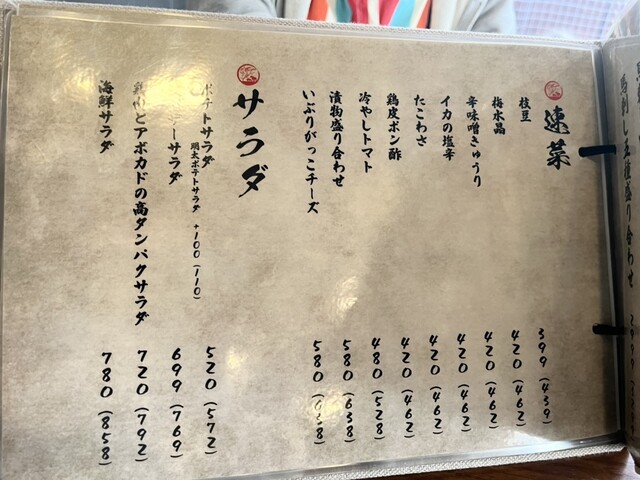 速菜
枝豆 399 (439)
梅水晶 420 (462)
辛味噌きゅうり 420 (462)
イカの塩辛 420 (462)
たこわさ 420 (462)
鶏皮ポン酢 420 (462)
冷やしトマト 480 (528)
漬物盛り合わせ 580 (638)
いぶりがっこチーズ 580 (638)
サラダ
ポテトサラダ 520 (572)
明太ポテトサラダ +100 (110)
サラダ 699 (769)
鶏肉とアボカドの高タンパクサラダ 720 (792)
海鮮サラダ 780 (858)
馬刺し五種盛り合わせ